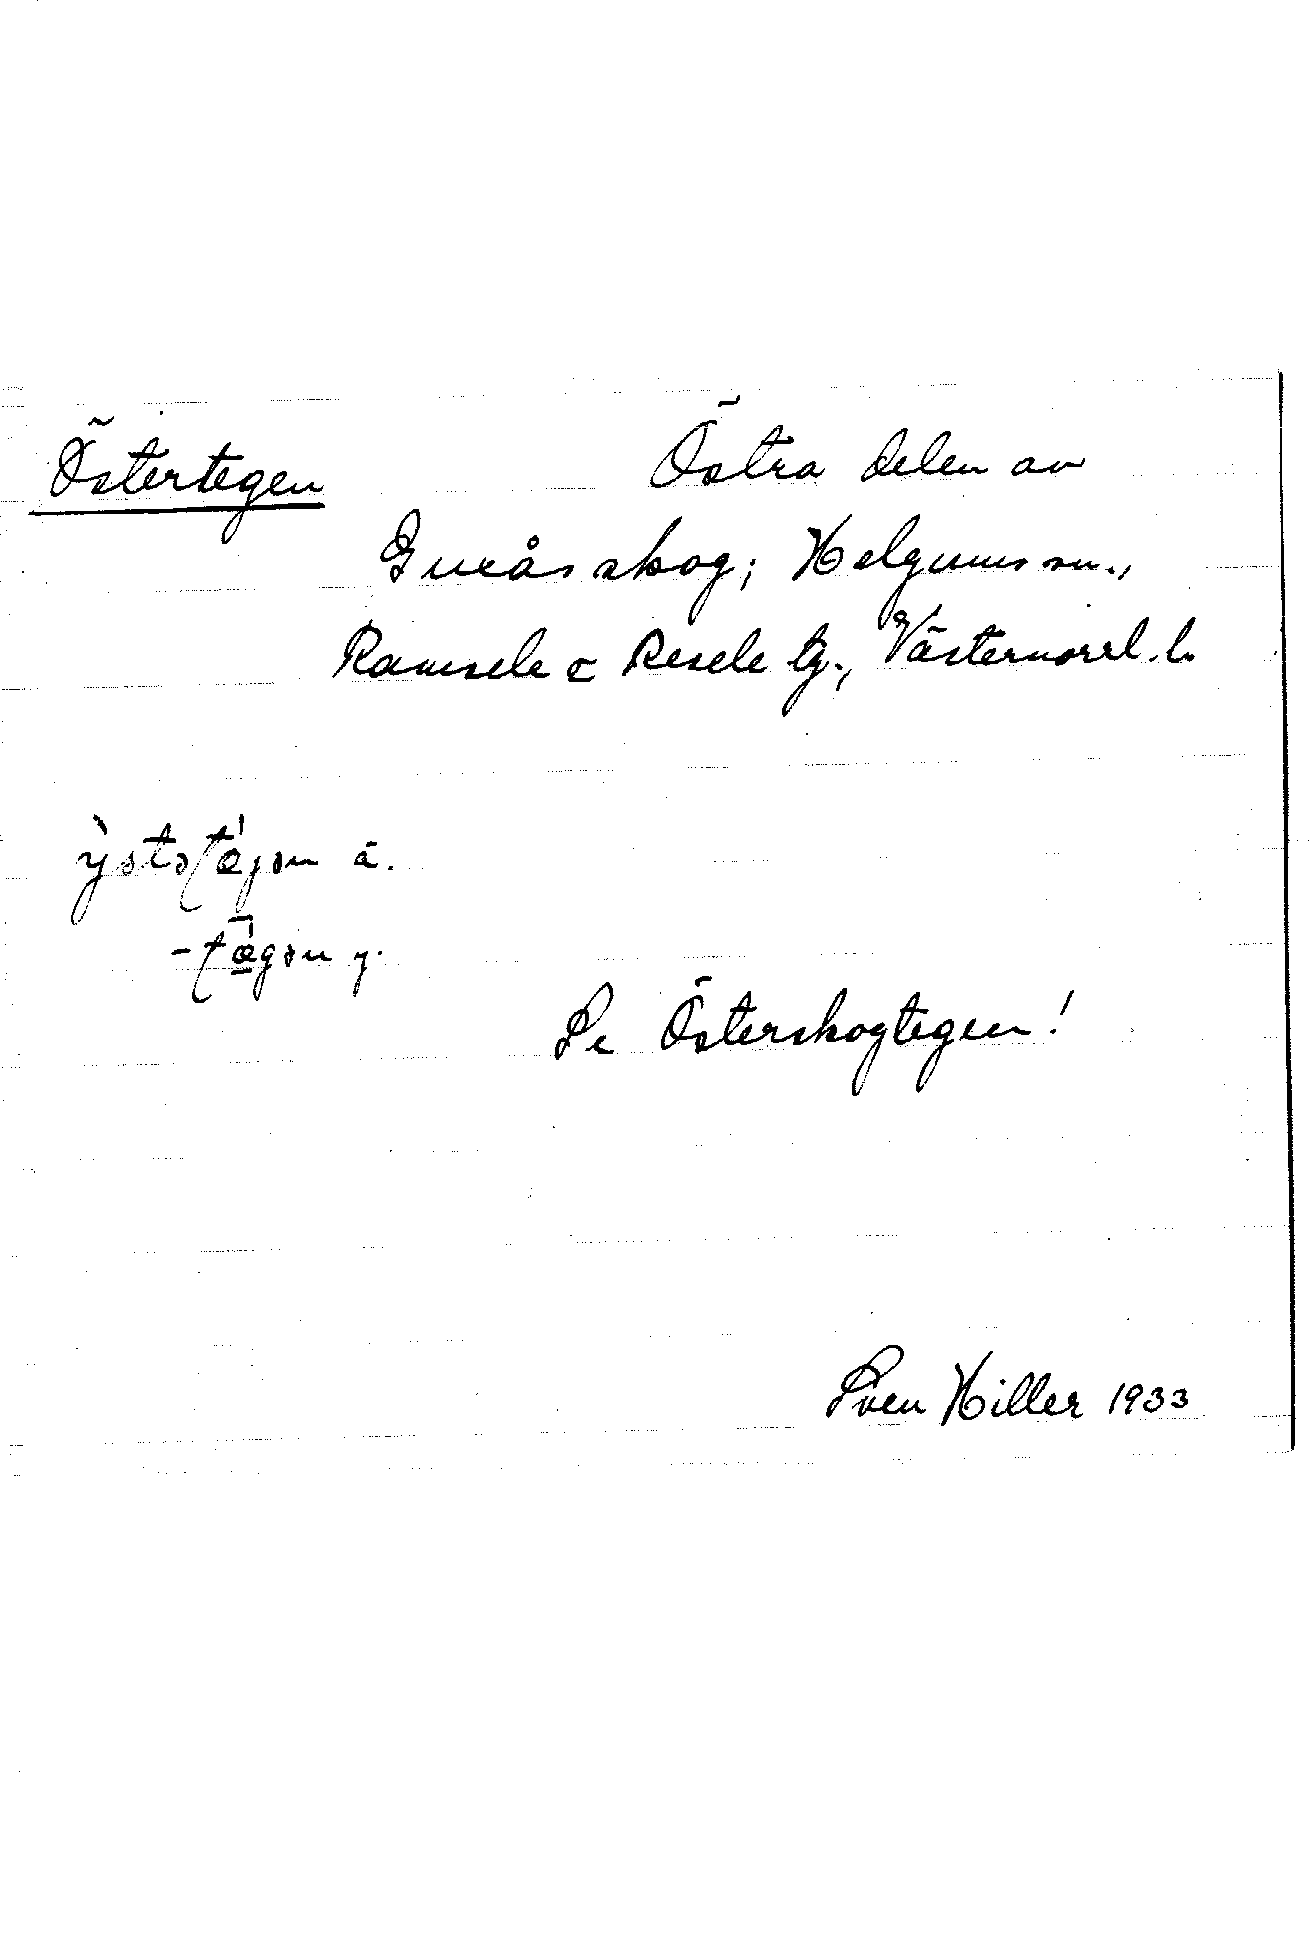 Östertegen Östra delen av
Guxåsskog; Helgums sn.,
Ramsele o Resele tg., Västernorrl. l.
ä.
y.
Se Österskogtegen!
Sven Hiller 1933